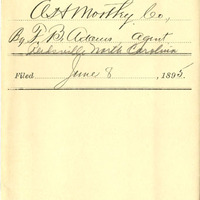 A H Motley Co,
By F. B. Adams, Agent
Reidsville North Carolina
Filed June 8, 1895.